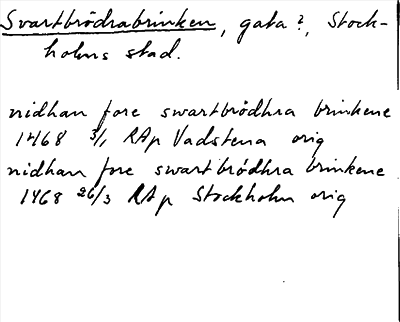 Svartbrödrabrinken, gata?, Stock-
holms stad.
nidhan fore swartbrödhra brinkene
1468 3/1 RAp Vadstena orig
nidhan fore swartbrödhra brinkene
1468 26/3 RAp Stockholm orig